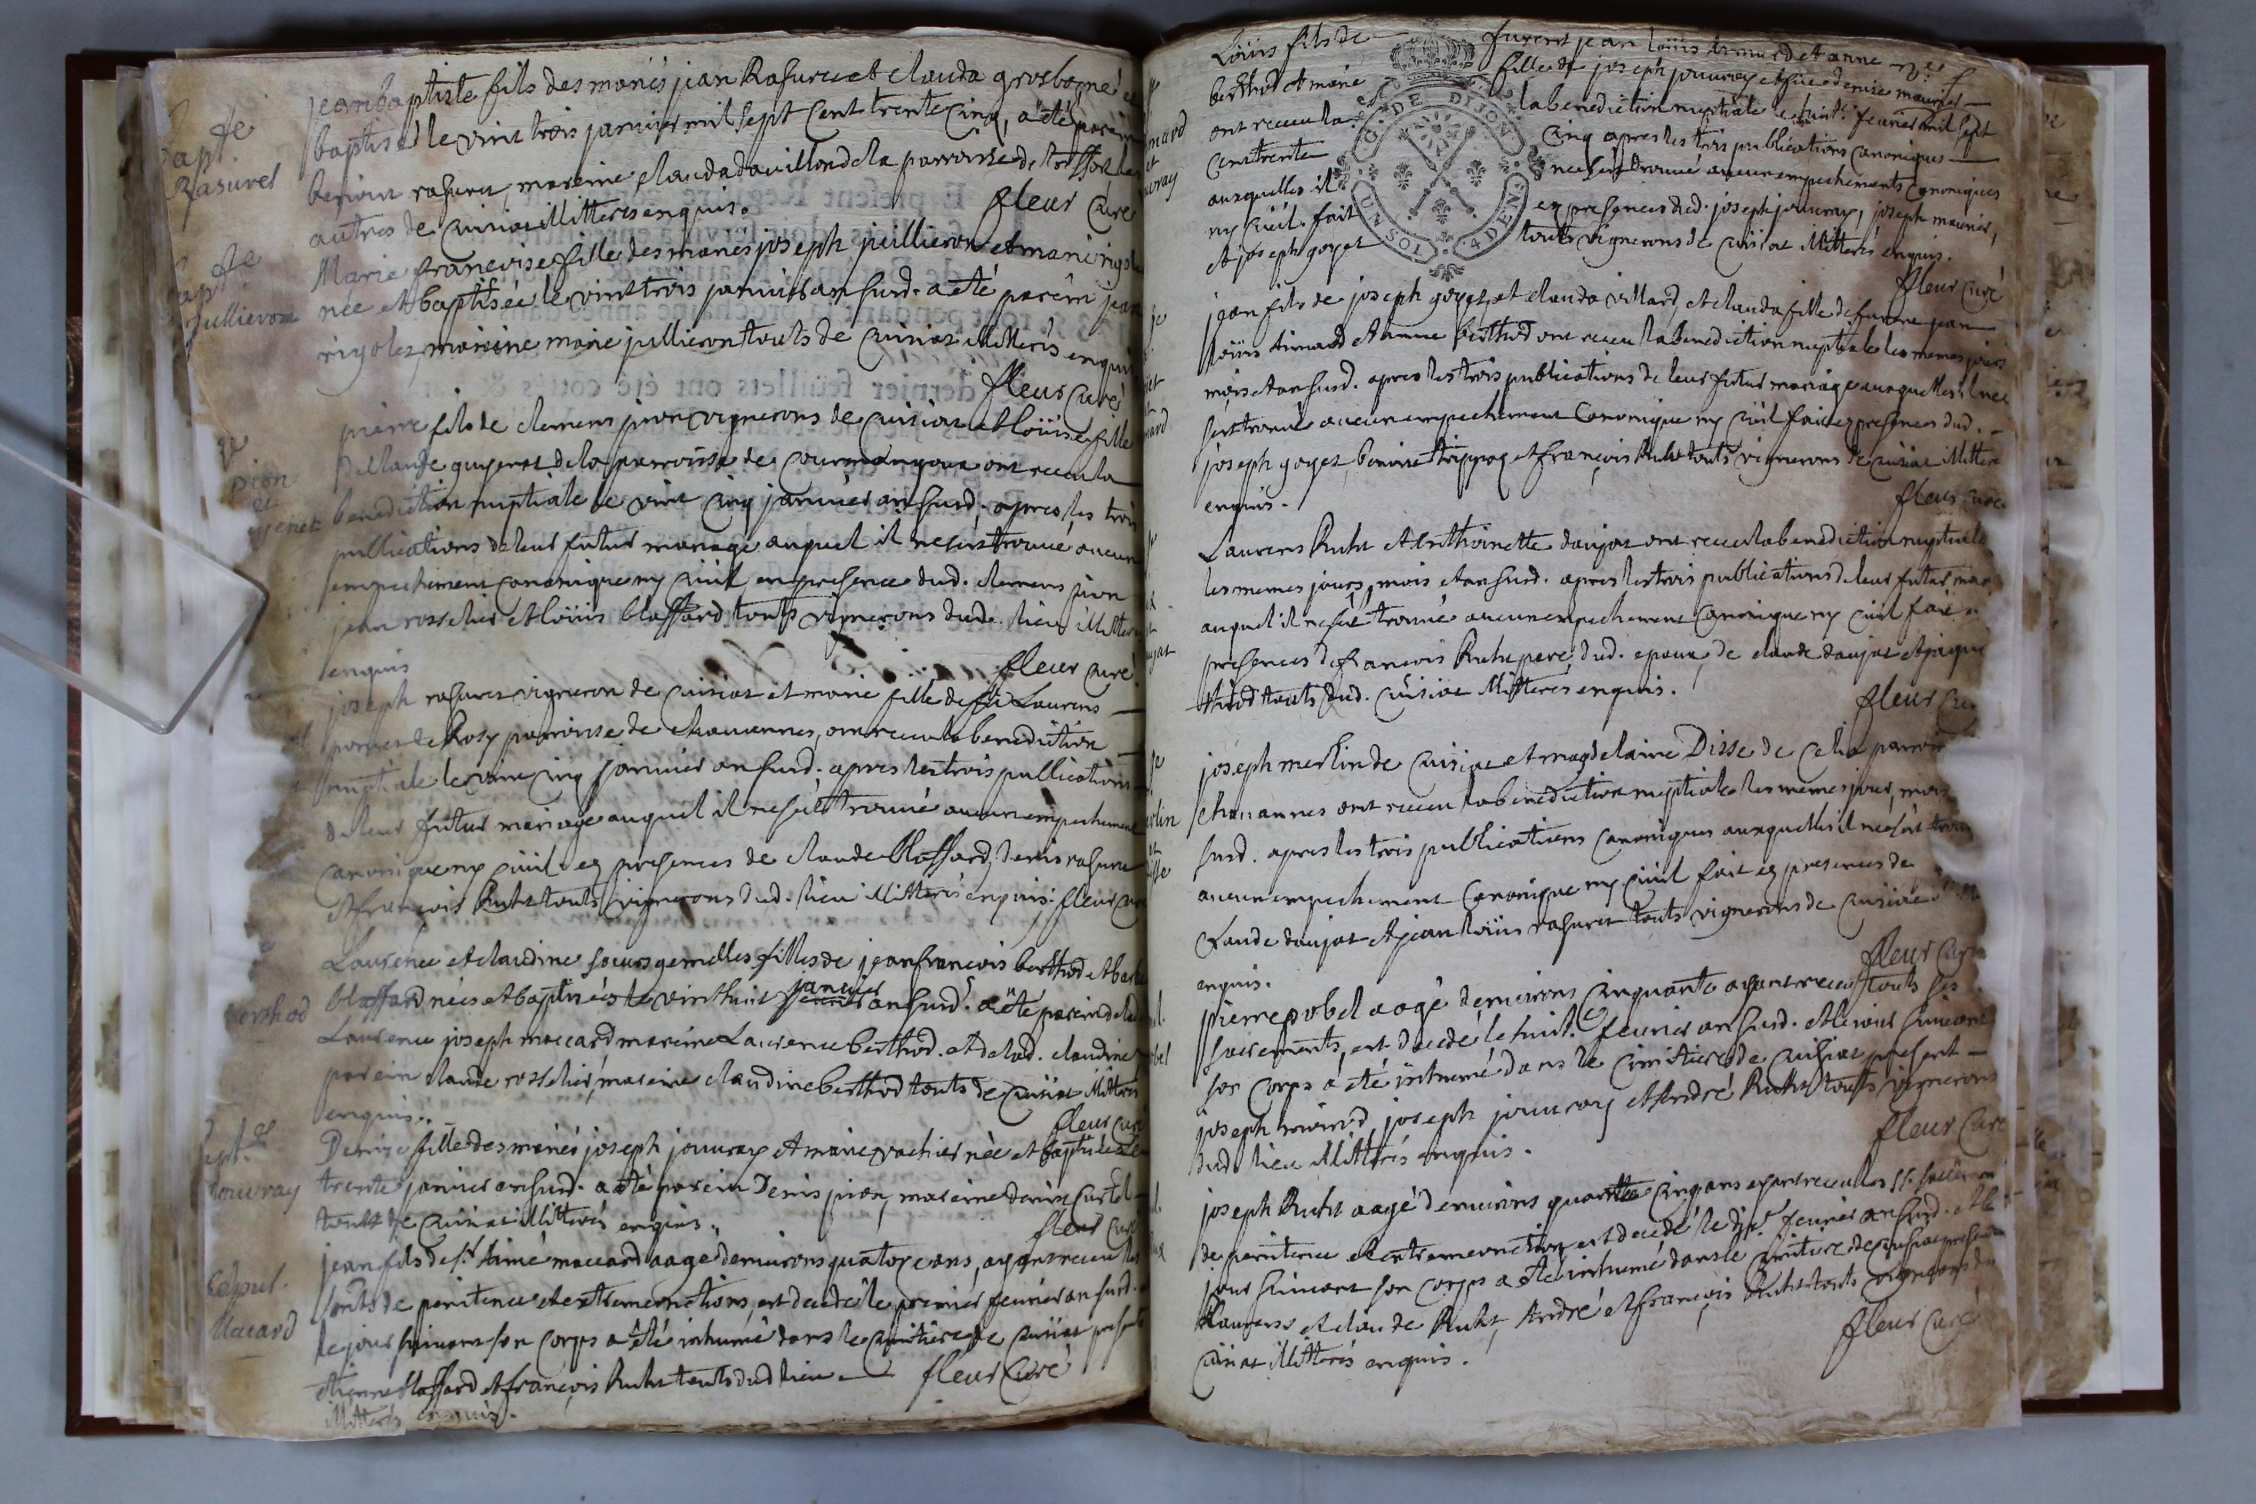 Bapt.e
Rasuret
jean baptiste fils des mariés jean Rasuret et clauda grosbogné
baptisé le vint trois janvier mil sept cent trente cinq, a été parein
benioin rasuret, mareine clauda dauillon de la parroisse de
autres de cuisiat illitterés enquis.
fleur curé
Bapt.e
jullieron
Marie francoise fille des mariés joseph jullieron et marie rigol
née et baptisée le vint trois janvier an susd. a été parein jean
rigolet, mareine marie jullieron touts de cuisiat illitterés enquis
fleur curé
pion
et
pierre fils de clemens pion vignerons de cuisiat et loüise fille
de claude guyenet de la parroisse de courmangoux ont receu la
benediction nuptiale le vint cinq janvier an susd. apres les trois
publications de leur futur mariage auquel il ne s'est trouvé aucun
empechement canonique ny civil en presence dud. clemens pion
jean rosselier et loüis blassard touts vignerons dud. lieu illitterés
enquis
fleur curé
joseph rasuret vigneron de cuisiat et marie fille de fû Laurens
de Rosy parroisse de chavannes, ont receu la benediction
nuptiale le vint cinq janvier an susd. apres les trois publications
de leur futur mariage auquel il ne s'est trouvé aucun empechement
canonique ny civil en presences de claude blassard, denis rasuret
et françois Ruht touts vignerons dud. lieu illitterés enquis. fleur curé
berthod
Laurence et claudine soeurs gemelles filles de jean francois berthod et
blassard nées et baptisées le vint huit janvier an susd. a été parein de lad.
Laurence joseph maccard mareine Laurence berthod. et de lad. claudine
parein claude rosselier, mareine claudine berthod touts de cuisiat illitterés
enquis.
fleur curé
Bapt.e
jouvray
Denise fille des mariés joseph jouvray et marie vachier née et baptisée le
trente janvier an susd. a été parein Denis pion, mareine denise curtel
touts de cuisiat illitterés enquis.
fleur curé
Sepul.
Macard
jean fils de s.r Aimé maccard aagé d'environs quatorze ans, ayant receu les
sants de penitence et extremeonctions, est decedé le premier fevrier an susd.
le jour suivant son corps a été inhumé dans le cimitiere de cuisiat presents
etienne blassard et françois Ruht touts dud lieu
fleur curé
illitterés enquis.
Loüis fils de furent jean loüis arnaud et anne
berthod et marie fille de joseph jouvray et de denise maurier
ont receu la la benediction nuptiale le huit. fevrier mil sept
cent trente cinq apres les trois publications canoniques
auxquelles il ne s'est trouvé aucun empechements canoniques
ny civil. fait en presences dud. joseph jouvray, joseph maurier,
et joseph goyet touts vignerons de cuisiat illitterés enquis.
fleur curé
G. DE DIJON
UN SOL 4 DEN.
jean fils de joseph goyet et clauda villard, et clauda fille de furent jean
loüis arnaud et anne berthod ont receu la benediction nuptiale les memes jours
mois et an susd. apres les trois publications de leur futur mariage auxquelles il ne
s'est trouvé aucun empechement canonique ny civil fait en presences dud.
joseph goyet, benoit trippoz et françois Ruht touts vignerons de cuisiat illitterés
enquis.
fleur curé
Laurens Ruht et Anthoinette daujat ont receu la benediction nuptiale
les memes jours, mois et an susd. apres les trois publications de leur futur mariage
auquel il ne s'est trouvé aucun empechement canonique ny civil fait en
presences de francois Ruht pere dud. epoux, de claude daujat et
touts dud. cuisiat illitterés enquis.
fleur curé
joseph merlin de cuisiat et magdelaine Disse de Celia parroisse
chavannes ont receu la benediction nuptiale les memes jour, mois
susd. apres les trois publications canoniques auxquelles il ne s'est trouvé
aucun empechement canonique ny civil fait en presences de
claude daujat et jean loüis rasuret touts vignerons de cuisiat
enquis.
fleur curé
pierre pobel aagé d'environs cinquante ayant receu touts ses
sacrements, est decedé le huit. fevrier an susd. et le jour suivant
son corps a été inhumé dans le cimitiere de cuisiat present
joseph joseph jouvray et André Ruht touts vignerons
dud. lieu illitterés enquis.
fleur curé
joseph Ruht aagé d'environs quarante cinq ans ayant receu les ss. sacrements
de penitence et extremeonction est decedé le fevrier an susd. et le
jour suivant son corps a été inhumé dans le cimitiere de cuisiat presents
Laurens et claude Ruht, André et françois Ruht touts vignerons de
cuisiat illitterés enquis.
fleur curé